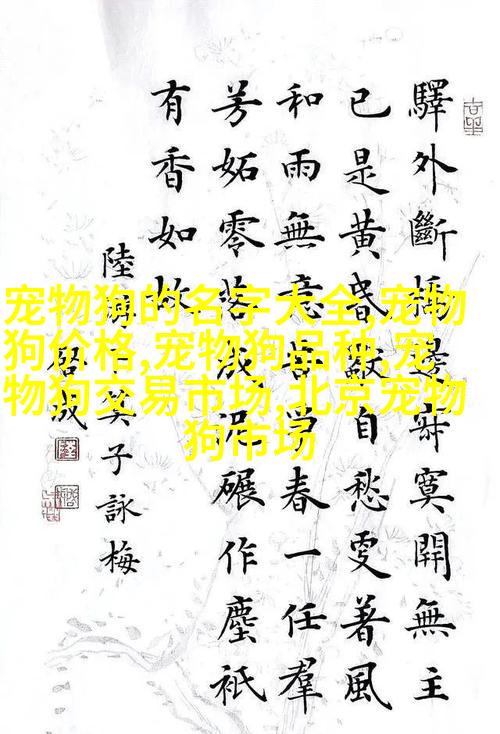 驛外斷橋邊寂寞開無主
已是黃昏獨自愁更著風
和雨無意苦爭春一任羣
芳妬零落成泥碾作塵祇
有香如故
陸游卜算子詠梅
宠物狗的名字大全,宠物
狗价格,宠物狗品种,宠
物狗交易市场,北京宠物
狗市场